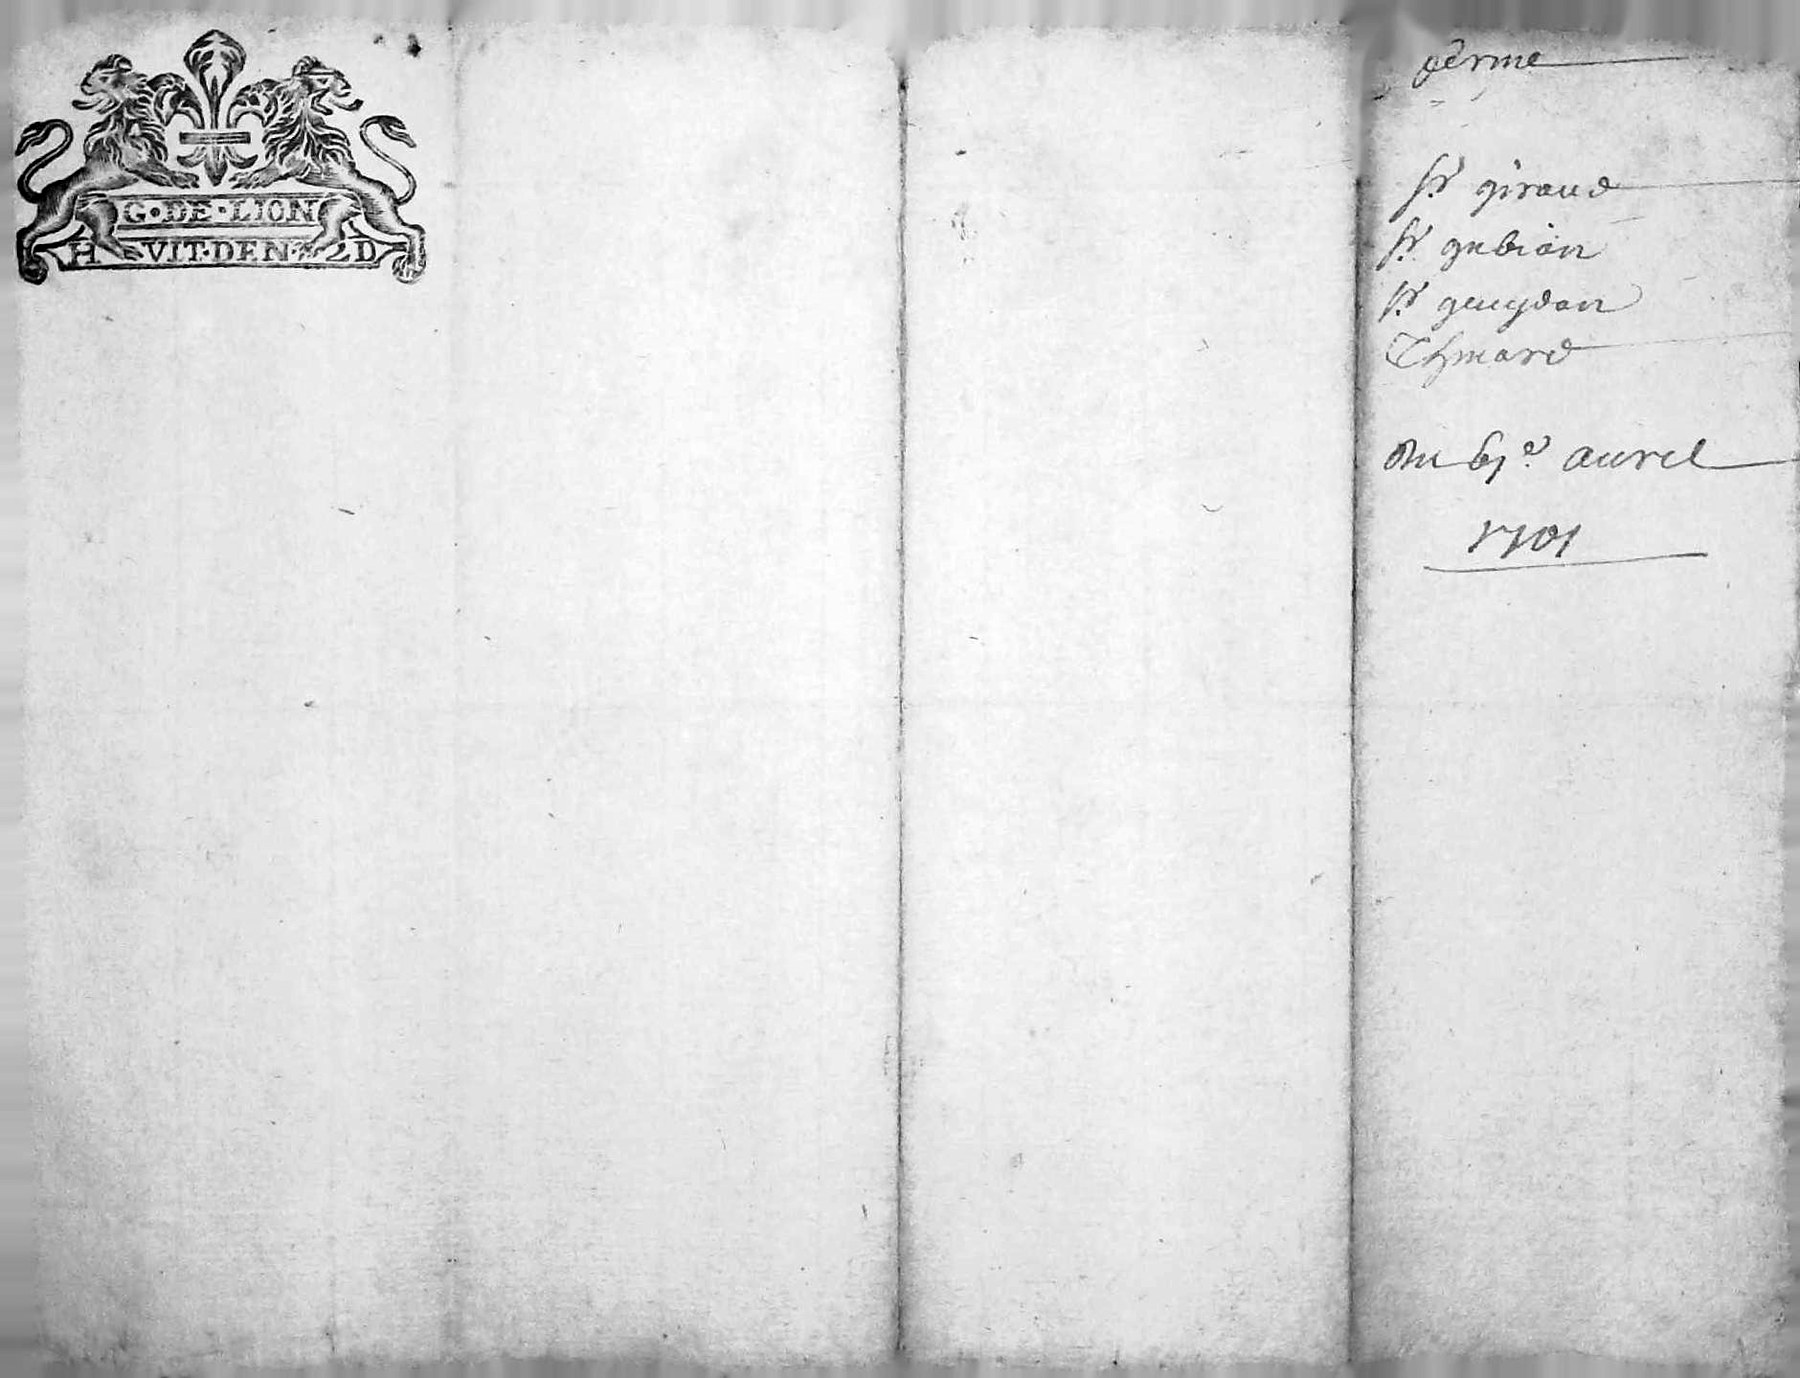 G·DE·LION
HVIT·DEN· 2D
ferme
sr giraud
sr gubian
sr guiydon
Thmard
du 6e auril
1701